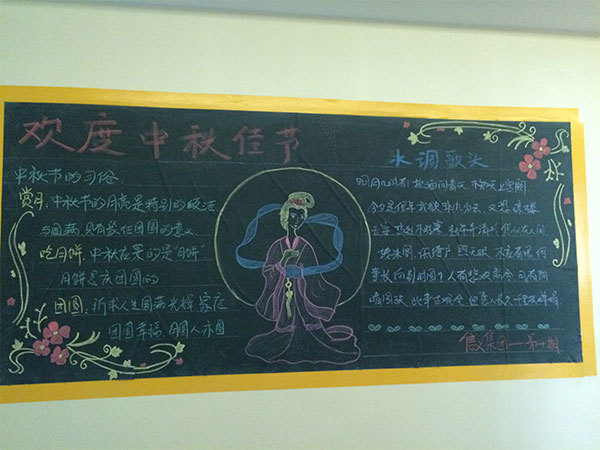 欢度中秋佳节
中秋节的习俗
赏月：中秋节的月亮是特别的
与圆满，具有象征团圆的意义
吃月饼：中秋在累的是"月饼"
月饼是庆团圆的
团圆：祈求人生圆满光辉 家庭
团圆幸福 月圆人亦圆
水调歌头
明月几时有 把酒问青天 不知天上宫阙
今夕是何年 我欲乘风归去 又恐琼楼
玉宇 高处不胜寒 起舞弄清影 何似在人间
转朱阁 低绮户 照无眠 不应有恨 何
事长向别时圆 人有悲欢离合 月有阴
晴圆缺 此事古难全 但愿人长久 千里共婵娟
信义集团